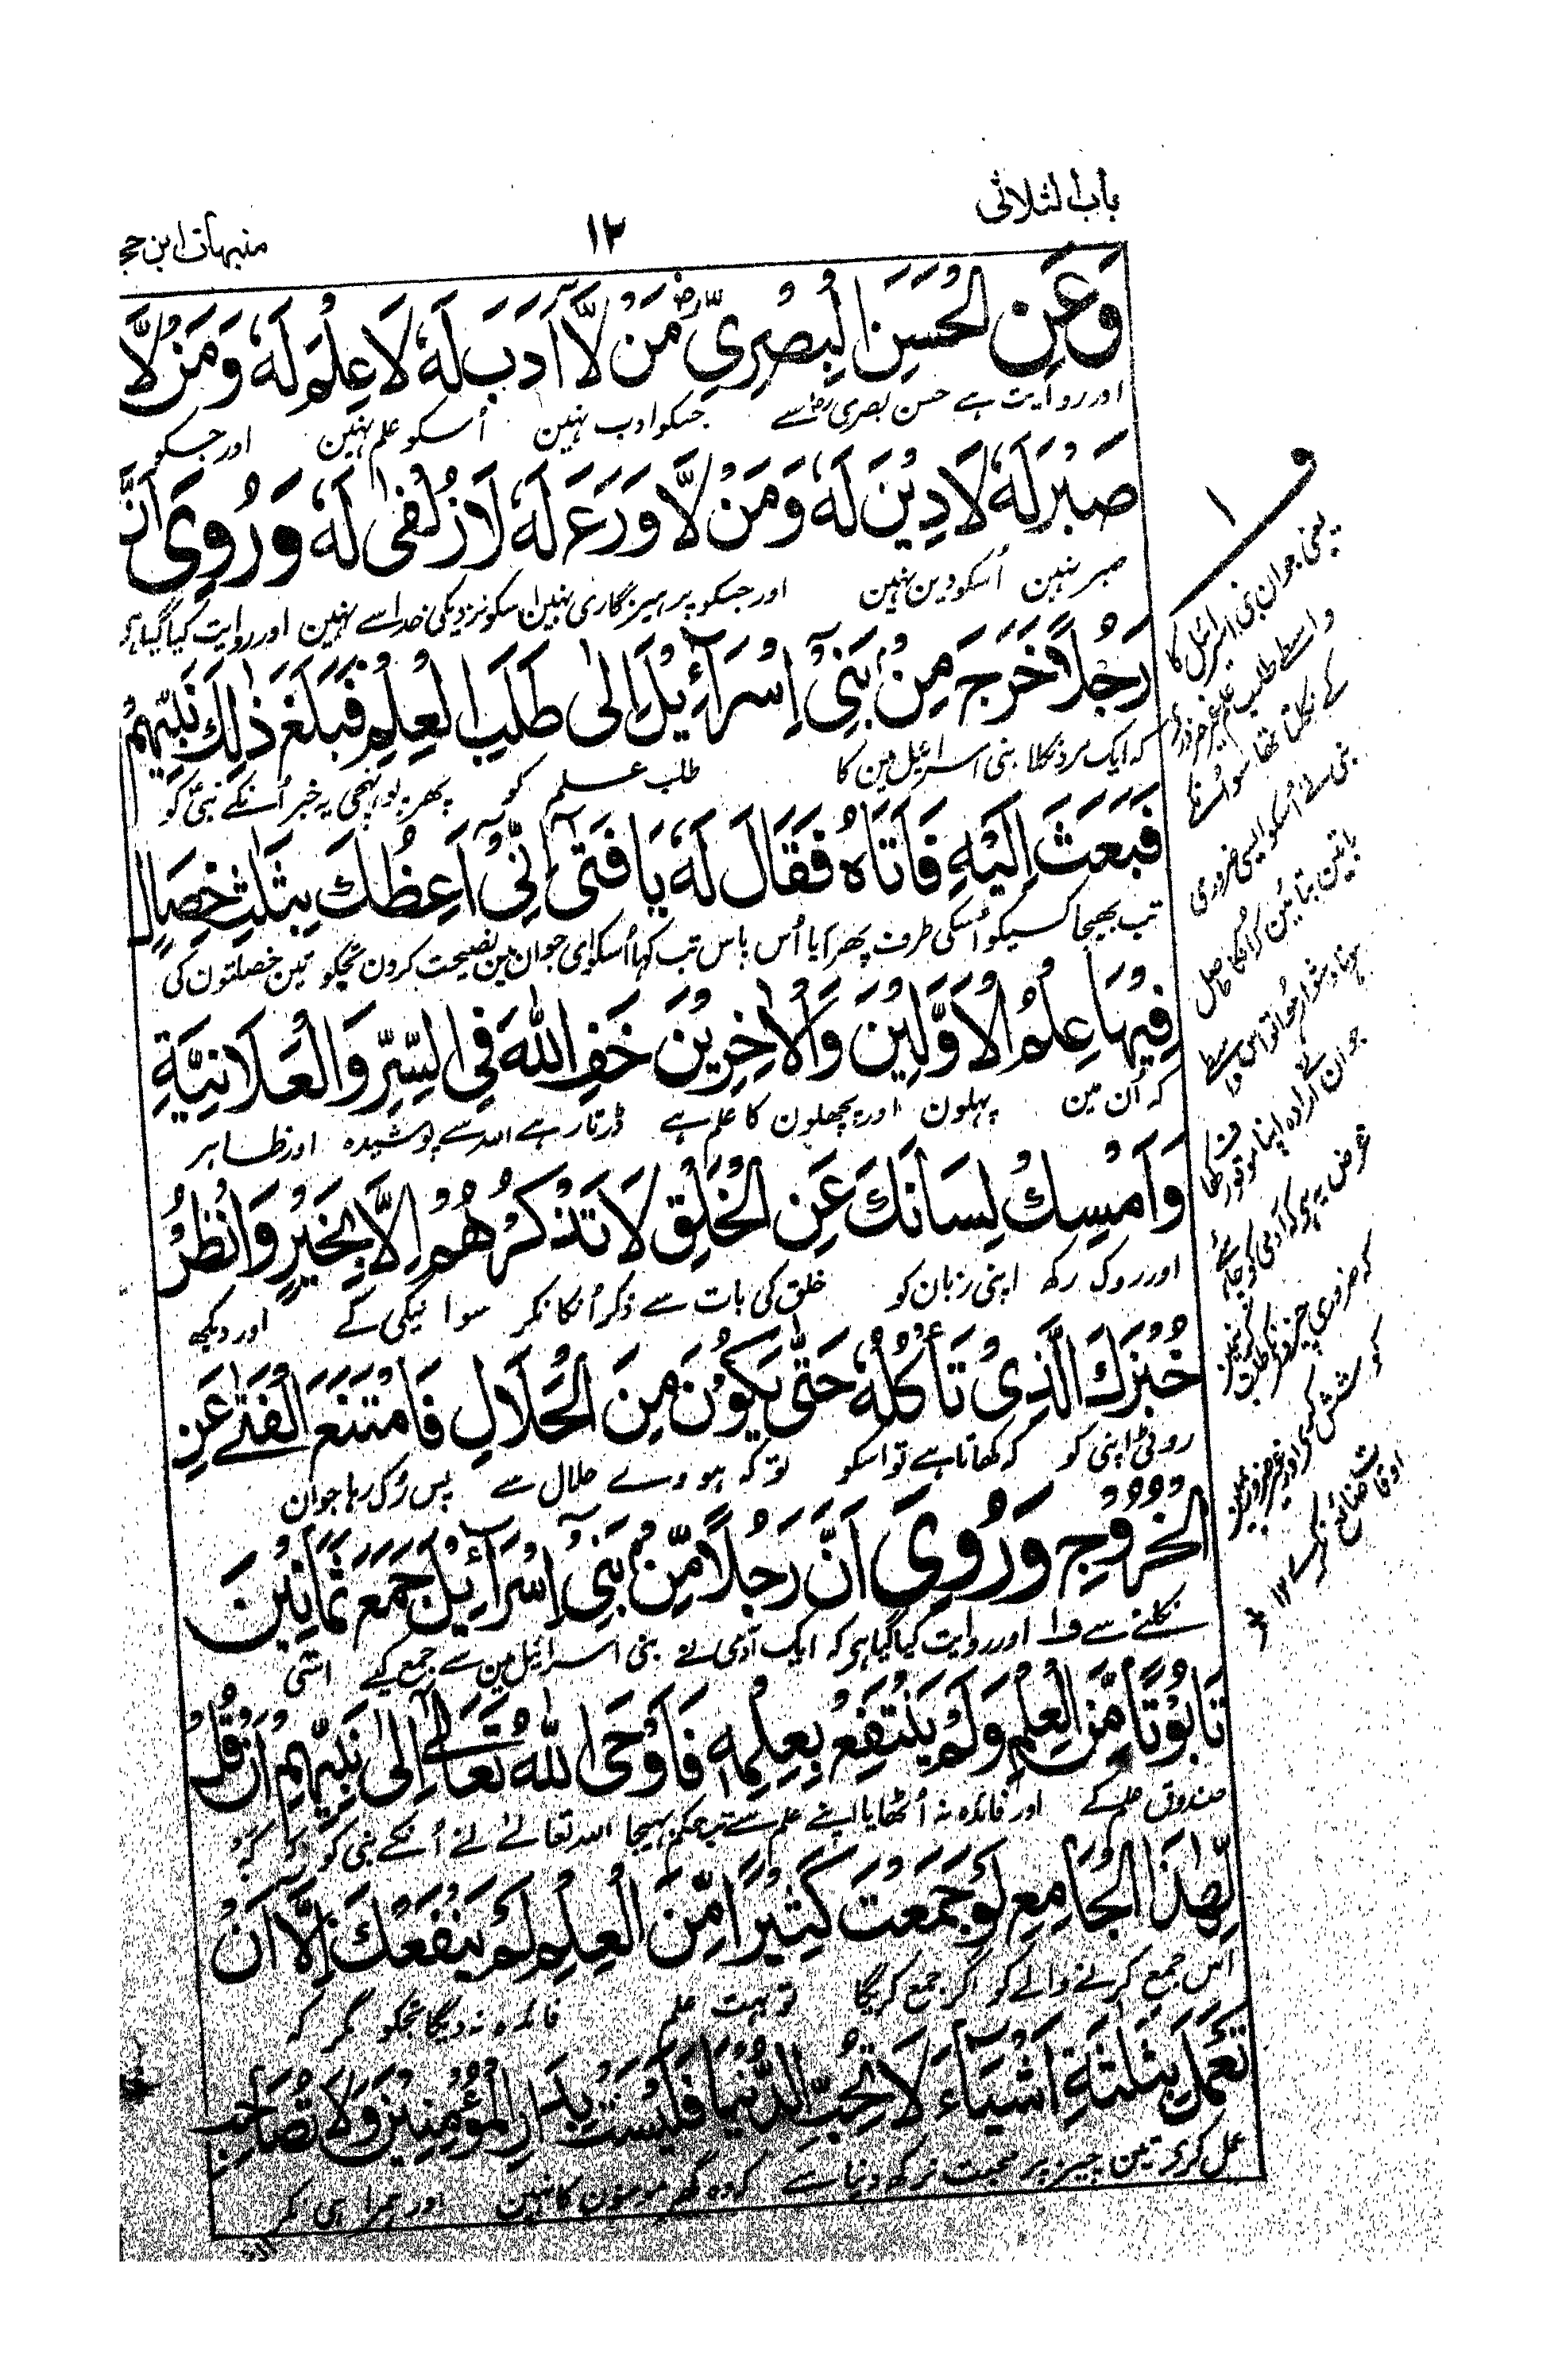 باب الثلاثی
۱۲
منبهات ابن حج
وَعَنِ الْحَسَنِ الْبَصْرِيِّ رض مَنْ لَّا اَدَبَ لَهٗ لَا عِلْمَ لَهٗ وَمَنْ لَّا
اور روایت ہے حسن بصری رض سے جسکو ادب نہین اُسکو علم نہین اور جسکو
صَبْرَ لَهٗ لَا دِيْنَ لَهٗ وَمَنْ لَّا وَرَعَ لَهٗ لَا زُلْفٰى لَهٗ وَرُوِيَ اَنَّ
صبر نہین اُسکو دین نہین اور جسکو پرہیزگاری نہین اسکو نزدیکی خدا سے نہین اور روایت کیا گیا ہے
رَجُلًا خَرَجَ مِنْ بَنِيْ اِسْرَآئِيْلَ اِلٰى طَلَبِ الْعِلْمِ فَبَلَغَ ذٰلِكَ نَبِيَّهُمْ
کہ ایک مرد نکلا بنی اسرائیل مین کا طلب علم کو پھر پہونچی یہ خبر اُنکے نبی کو
فَبَعَثَ اِلَيْهِ فَاَتَاهُ فَقَالَ لَهٗ يَا فَتٰى اِنِّيْ اَعِظُكَ بِثَلٰثِ خِصَالٍ
تب بھیجا کسیکو اُسکی طرف پھر آیا اُس پاس تب کہا اُسکو ای جوان مین نصیحت کرون تجکو تین خصلتون کی
فِيْهَا عِلْمُ الْاَوَّلِيْنَ وَالْاٰخِرِيْنَ خَفِ اللّٰهَ فِي السِّرِّ وَالْعَلَانِيَّةِ
کہ اُن مین پہلون اور پچھلون کا علم ہے ڈرتا رہے اللہ سے پوشیدہ اور ظاہر
وَاَمْسِكْ لِسَانَكَ عَنِ الْخَلْقِ لَا تَذْكُرْهُمْ اِلَّا بِخَيْرٍ وَانْظُرْ
اور روک رکھ اپنی زبان کو خلق کی بات سے ذکر اُنکا نکر سوا نیکی کے اور دیکھ
خُبْزَكَ الَّذِيْ تَأْكُلُهٗ حَتّٰى يَكُوْنَ مِنَ الْحَلَالِ فَامْتَنَعَ الْفَتٰى عَنِ
روٹی اپنی کو کہ کھاتا ہے تو اسکو تو کہ ہووے حلال سے پس رُک رہا جوان
الْخُرُوْجِ وَرُوِيَ اَنَّ رَجُلًا مِّنْ بَنِيْ اِسْرَآئِيْلَ جَمَعَ ثَمَانِيْنَ
نکلنے سے ف۱ اور روایت کیا گیا ہی کہ ایک آدمی نے بنی اسرائیل مین سے جمع کیے اسّی
تَابُوْتًا مِّنَ الْعِلْمِ وَلَمْ يَنْتَفِعْ بِعِلْمِهٖ فَاَوْحَى اللّٰهُ تَعَالٰى اِلٰى نَبِيِّهِمْ اَنْ قُلْ
صندوق علم کے اور فائدہ نہ اُٹھایا اپنے علم سے تب حکم بھیجا اللہ تعالےٰ نے اُنکے نبی کو کہ کہ
لِّهٰذَا الْجَامِعِ لَوْ جَمَعْتَ كَثِيْرًا مِّنَ الْعِلْمِ لَمْ يَنْفَعْكَ اِلَّا اَنْ
اس جمع کرنے والے کو اگر جمع کریگا تو بہت علم فائدہ نہ دیگا تجکو مگر کہ
تَعْمَلَ بِثَلٰثَةِ اَشْيَآءَ لَا تُحِبَّ الدُّنْيَا فَلَيْسَتْ بِدَارِ الْمُؤْمِنِيْنَ وَلَا تُصَاحِبِ
عمل کرے تین چیز پر محبت نرکھ دنیا سے کہ وہ گھر مومنون کا نہین اور ہمراہی نکر
ف۱
یعنی جوان بنی اسرائیل کا
واسطے طلب علم غیر ضروری
کے نکلتا تھا سو اُنکے
نبی نے اُسکو ایسی ضروری
باتین بتائین کہ اُنکا حاصل
ہونا دشوار تھا تو اس واسطے
جوان نے ارادہ اپنا موقوف رکھا
غرض یہ ہی کہ آدمی کو چاہئے
کہ ضروری چیزونکی طلب مین
کوشش کرے اور غیر ضروری مین
اوقات ضائع نکرے ۱۲